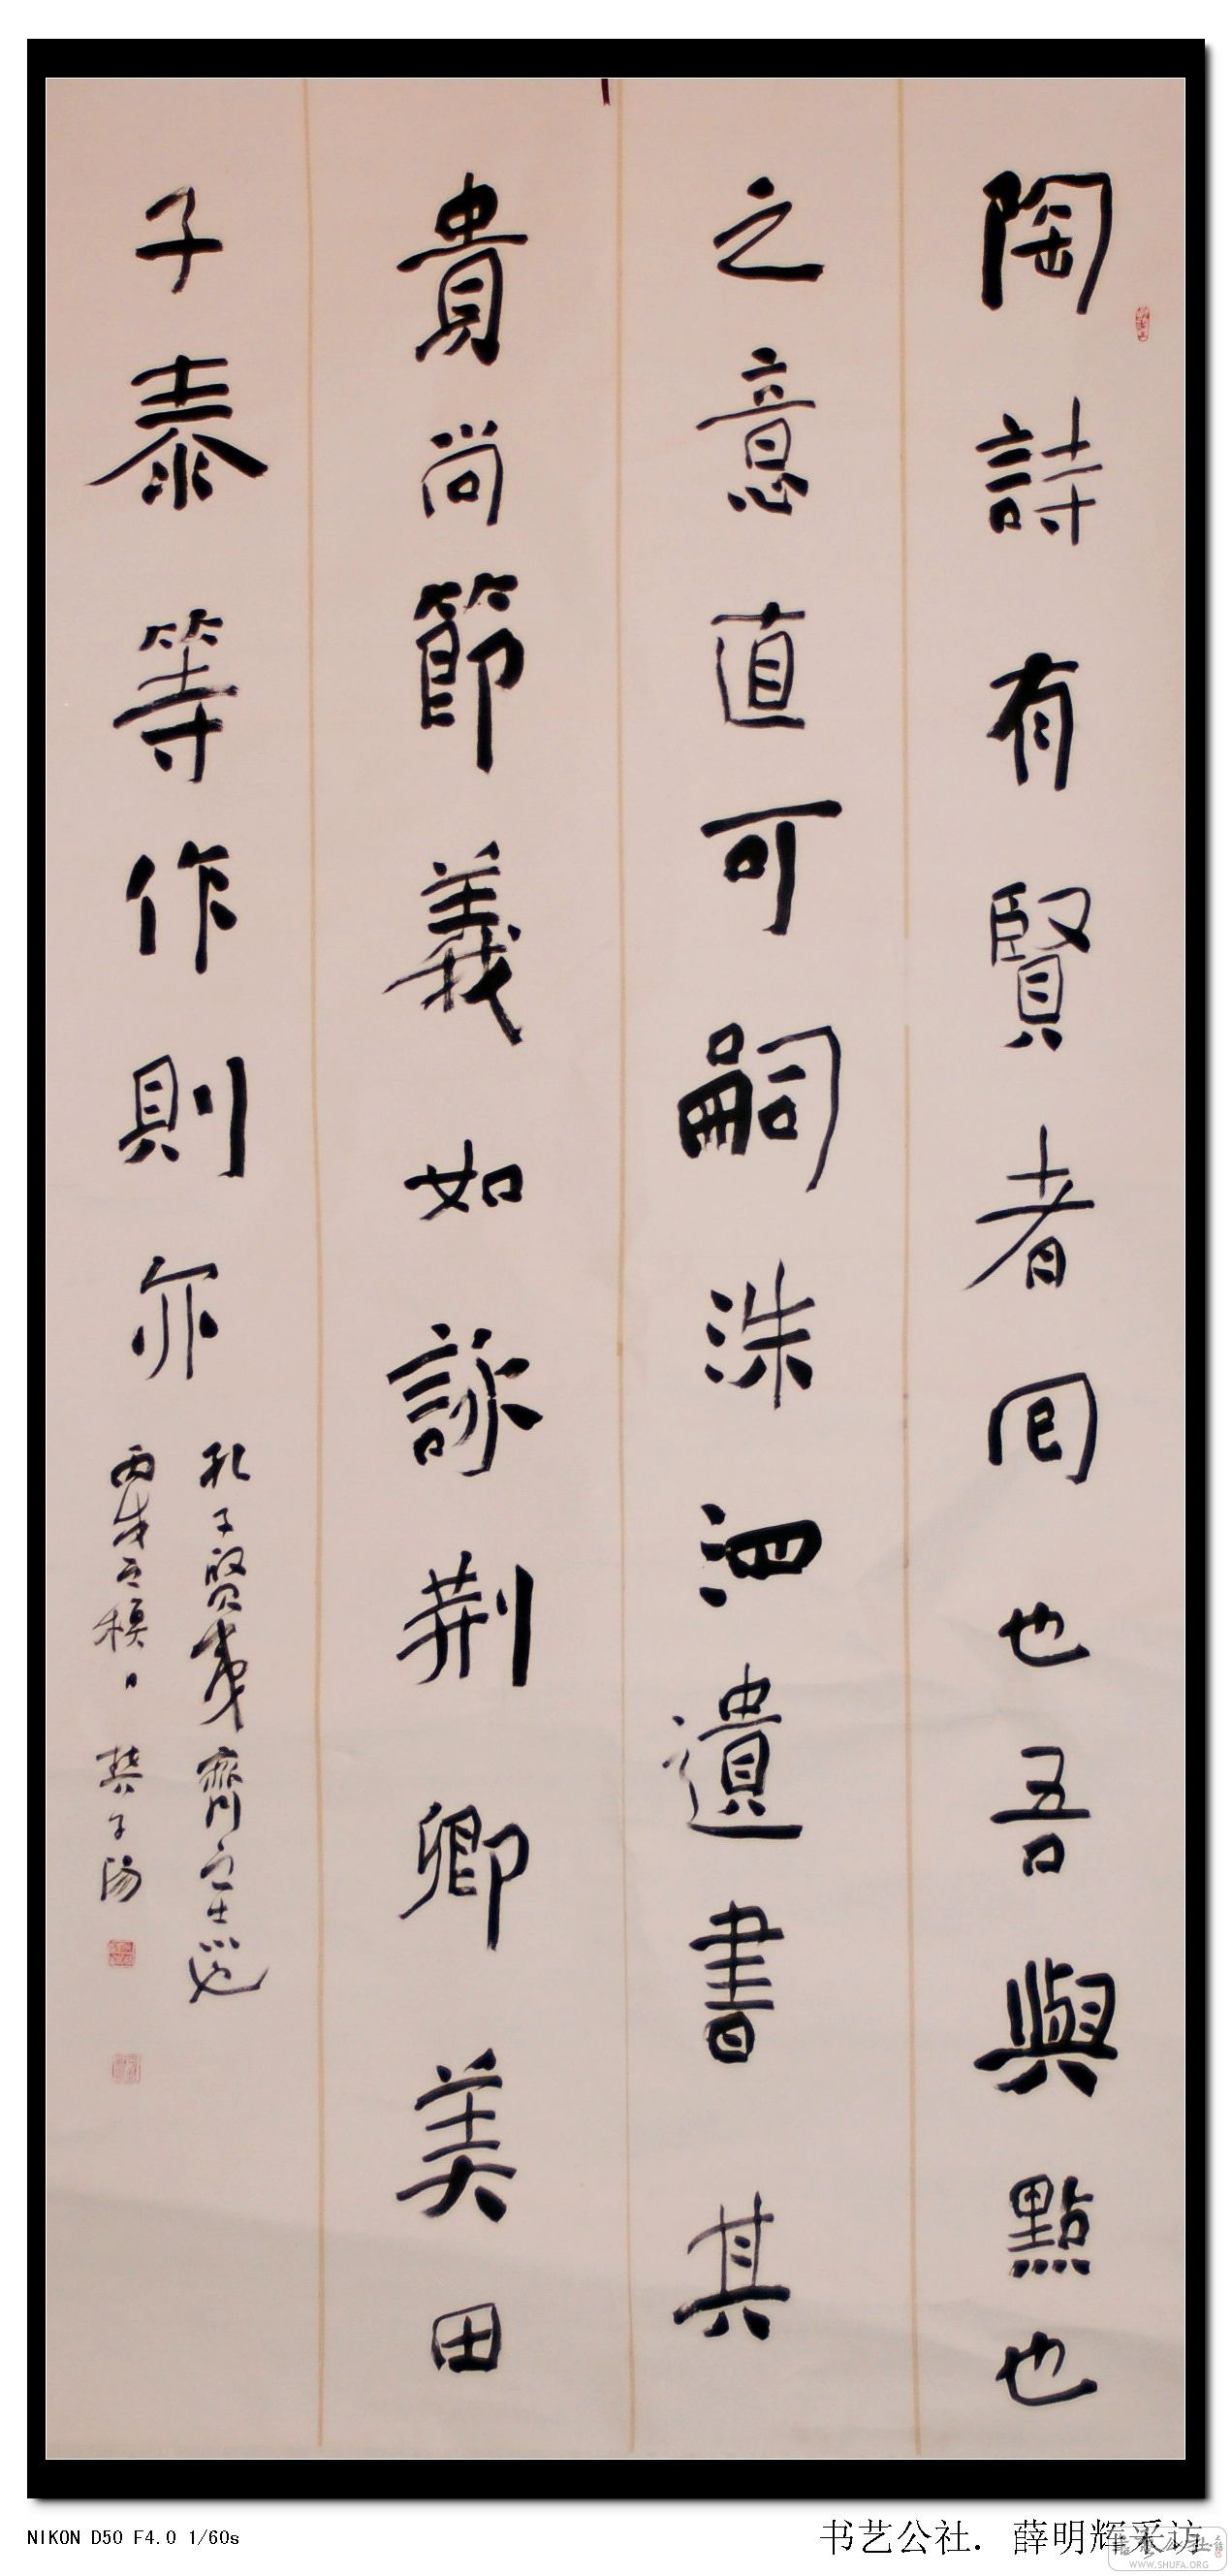 陶詩有賢者回也吾與點也
之意直可嗣洙泗遺書其
貴尚節義如詠荊卿美田
子泰等作則亦
孔子賢夷齊之志也
丙戌之模日 樊子陽
NIKON D50 F4.0 1/60s
书艺公社. 薛明辉采访
WWW.SHUFA.ORG